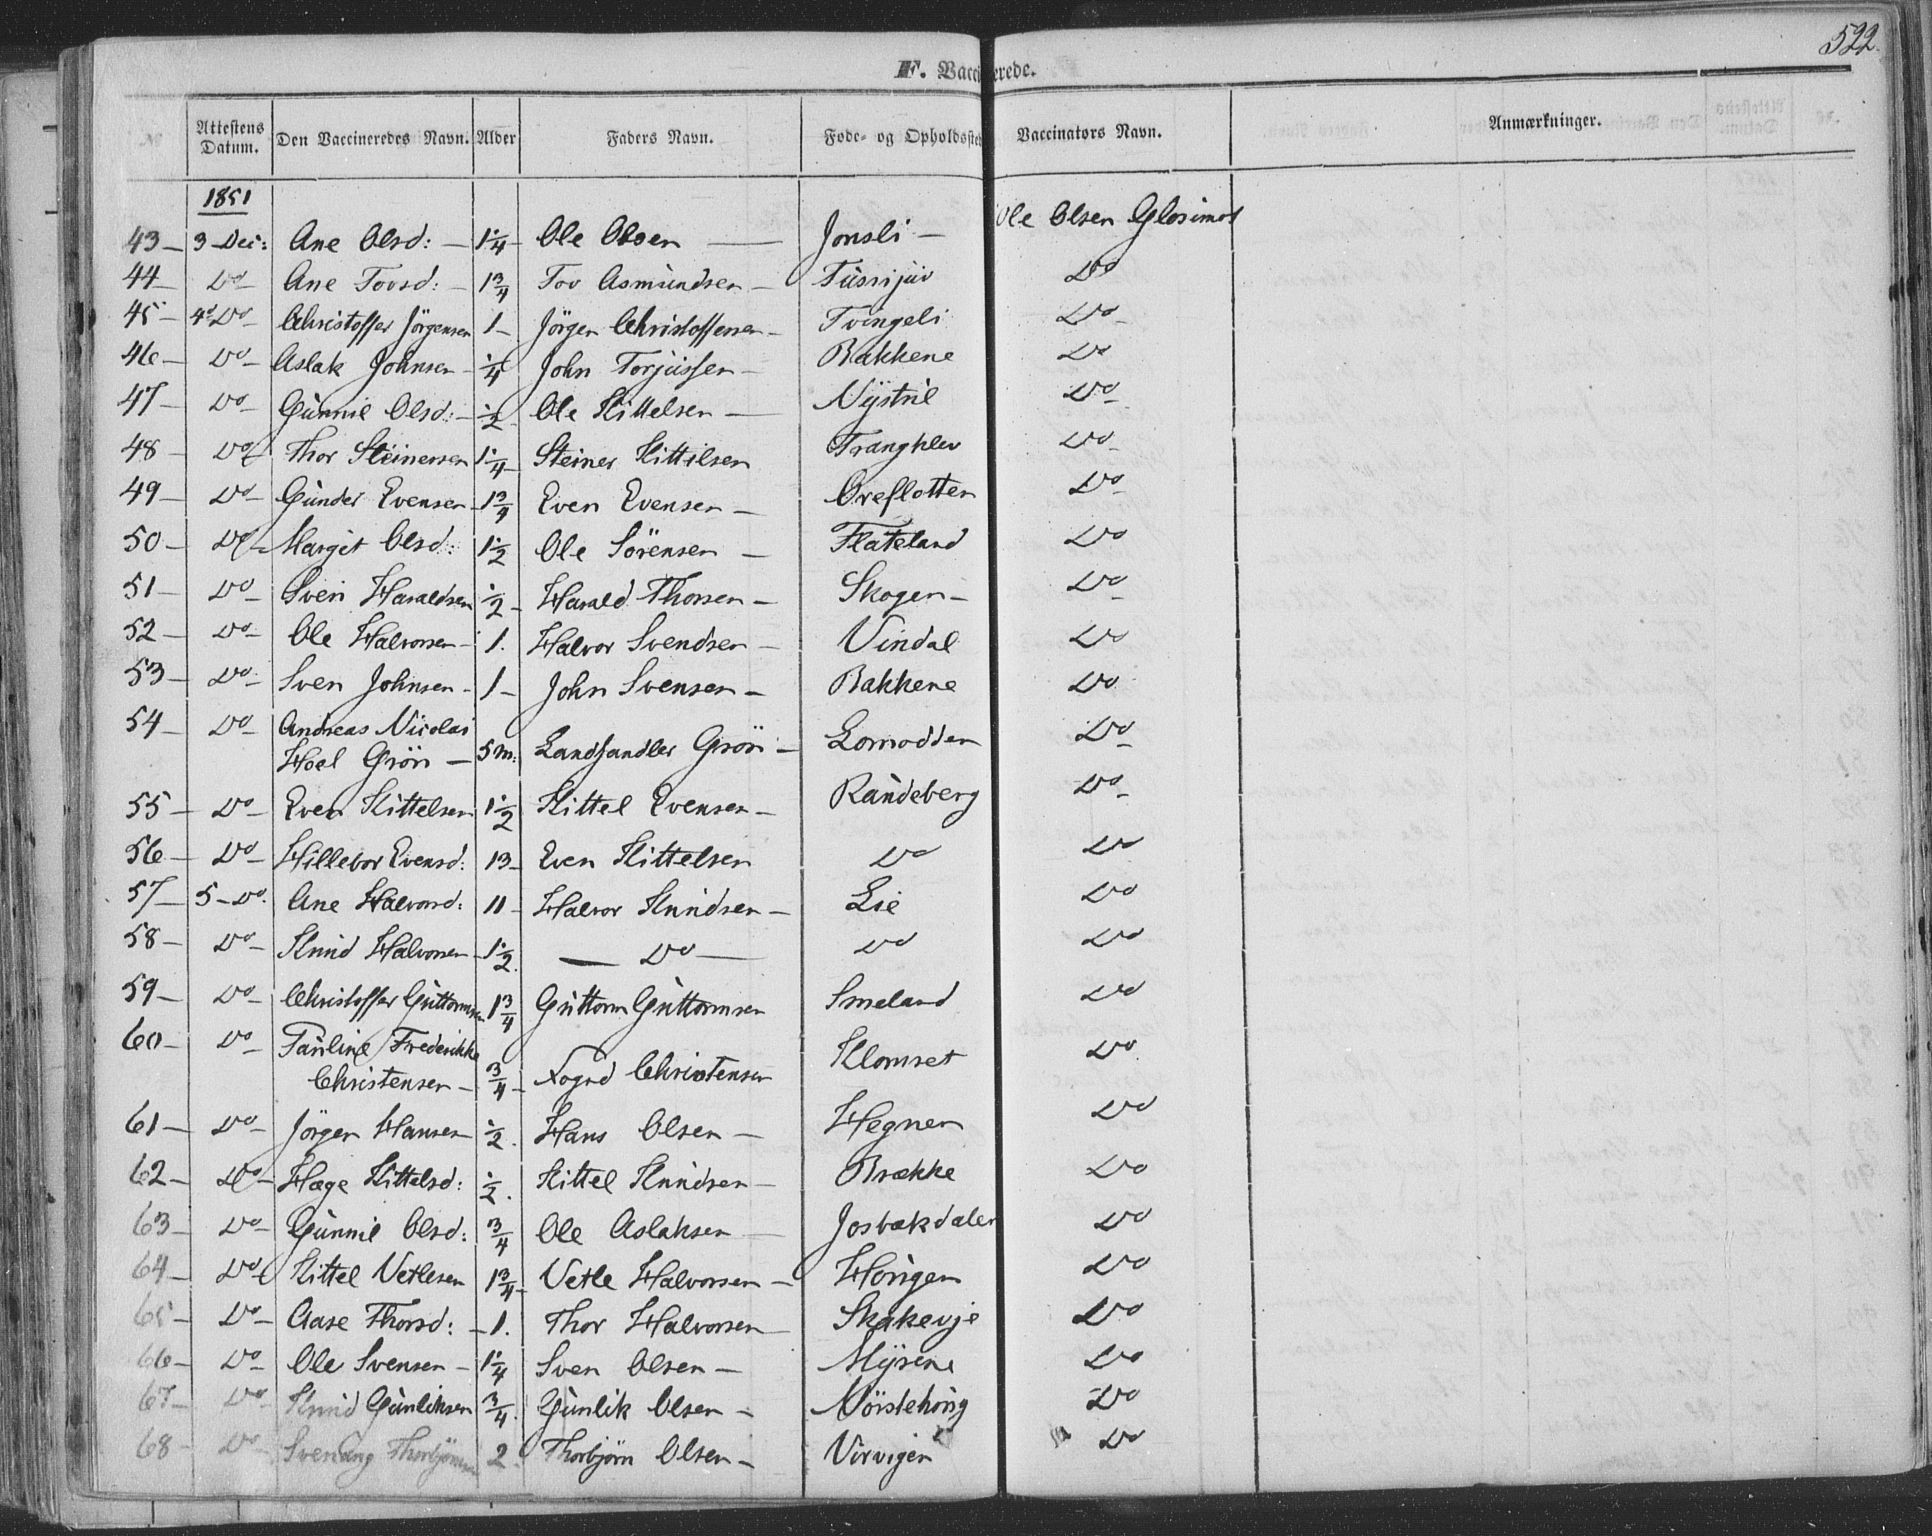 522.
F. Vaccinerede.
№ Attestens Datum. Den Vaccineredes Navn. Alder Faders Navn. Føde- og Opholdssted Vaccinators Navn. Anmærkninger.
1851
43 – 3 Dec: Ane Olsd: – 1 1/4 – Ole Olsen – Jonsli – Ole Olsen Glosimot
44 – Do – Ane Tovsd: – 1 3/4 Tov Asmundsen – Do
45 – 4 Do – Christoffer Jörgensen 1 – Jörgen Christoffersen – Tvingeli Do –
46 – Do – Aslak Johnsen – 1/4 John Torjussen – Bakkene Do
47 – Do – Gunnil Olsd: – 1/2 Ole Kittelsen – Nystül Do –
48 – Do – Thor Steinersen 1 1/4 – Steiner Kittilsen Trangklev Do –
49 – Do – Gunder Evensen 1 3/4 Even Evensen – Oreflotten Do –
50 – Do – Margit Olsd: 1 1/2 Ole Sörensen – Flateland Do
51 – Do – Sven Haraldsen 1/2 – Harald Thorsen – Skogen – Do –
52 – Do – Ole Halvorsen – 1. Halvor Svendsen – Vindal Do
53 – Do – Sven Johnsen – 1 – John Svensen – Bakkene Do
54 – Do – Andreas Nicolai
Hoel Grön – 5 m: Landhandler Grön – Lomodden Do –
55 – Do – Even Kittelsen 1 1/2 Kittel Evensen – Randeberg Do –
56 – Do – Hillebor Evensd: 13 – Even Kittelsen Do Do
57 – 5 – Do. Ane Halvorsd: 11 – Halvor Knudsen – Lie Do
58 – Do – Knud Halvorsen – 1 1/2. – Do – Do Do
59 – Do – Christoffer Guttormsen 1 3/4 Guttorm Guttormsen Smeland Do
60 – Do – Pauline Frederikke
Christensen – 3/4 – Fogd Christensen Klomset Do
61 – Do – Jörgen Hansen 1/2. Hans Olsen – Hegnen Do
62 – Do – Hæge Kittelsd: 1/2. Kittel Knudsen – Brække Do
63 – Do – Gunnil Olsd: 3/4 Ole Aslaksen – Josbækdalen Do
64 – Do – Kittel Vetlesen 1 3/4 – Vetle Halvorsen – Haugen Do
65 – Do – Aase Thorsd: – 1. Thor Halvorsen – Skakevje Do
66 – Do – Ole Svensen – 1 1/4 Sven Olsen – Myrene Do
67 – Do – Knud Gunliksen 3/4. Gunlik Olsen – Do
68 – Do – Svenung Thorbjörnsen 2. Thorbjörn Olsen – Virvigen Do